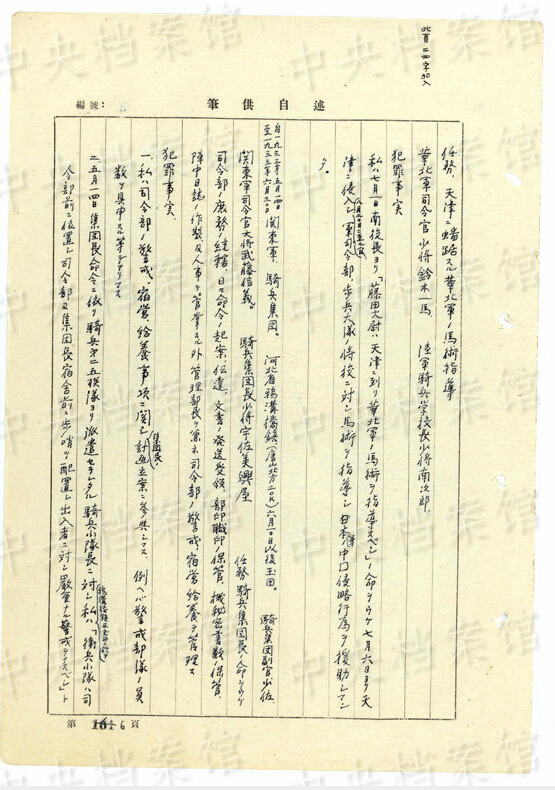 此頁二四字加入
編號：
述自供筆
任務、天津ニ蟠踞スル華北軍ノ馬術指導
華北軍司令官少將鈴木一馬、陸軍騎兵学校長少將南次郎、
犯罪事実
私ハ七月一日南校長ヨリ「藤田大尉ハ天津ニ到リ華北軍ノ馬術ヲ指導スベシ」ノ命ヲウケ七月六日ヨリ天
津ニ侵入シ軍司令部、歩兵大隊ノ将校ニ対シ馬術ヲ指導シ日本軍ノ中囗侵略行為ヲ援助シマシ
タ。
自一九三三年五月一四日
至一九三三年六月三〇日
関東軍、騎兵集団。河北省鴉溝橋鎮(唐山北方二〇K)六月一〇日以後玉田。騎兵集団副官少佐、
関東軍司令官大將武藤信義。騎兵集団長少將宇佐美興屋 任務 騎兵集団長ノ命ヲウケ
司令部ノ庶務ノ統轄、日々命令ノ起案、伝達、文書ノ発送受領、部印職印ノ保管、機秘密書類ノ保管、
陣中日誌ノ作製及人事ヲ管掌スル外管理部長ヲ兼ネ司令部ノ警戒、宿営、給養ヲ管理ス
犯罪事実、
一、私ハ司令部ノ警戒、宿営、給養ノ事項ニ関シ集団長ノ計画立案ニ参与シマス、例ヘバ警戒部隊ノ員
数ヲ具申スル等デアリマス
二、五月一四日集団長命令ニ依リ騎兵第二五聯隊ヨリ派遣セラレタル騎兵小隊長ニ対シ私ハ「衛兵小隊ハ司
令部前ニ位置シ司令部及集団長宿舎前ニ歩哨ヲ配置シ出入者ニ対シ厳重ナル警戒ヲナスベシ」ト
第 16 6 頁
中央档案馆